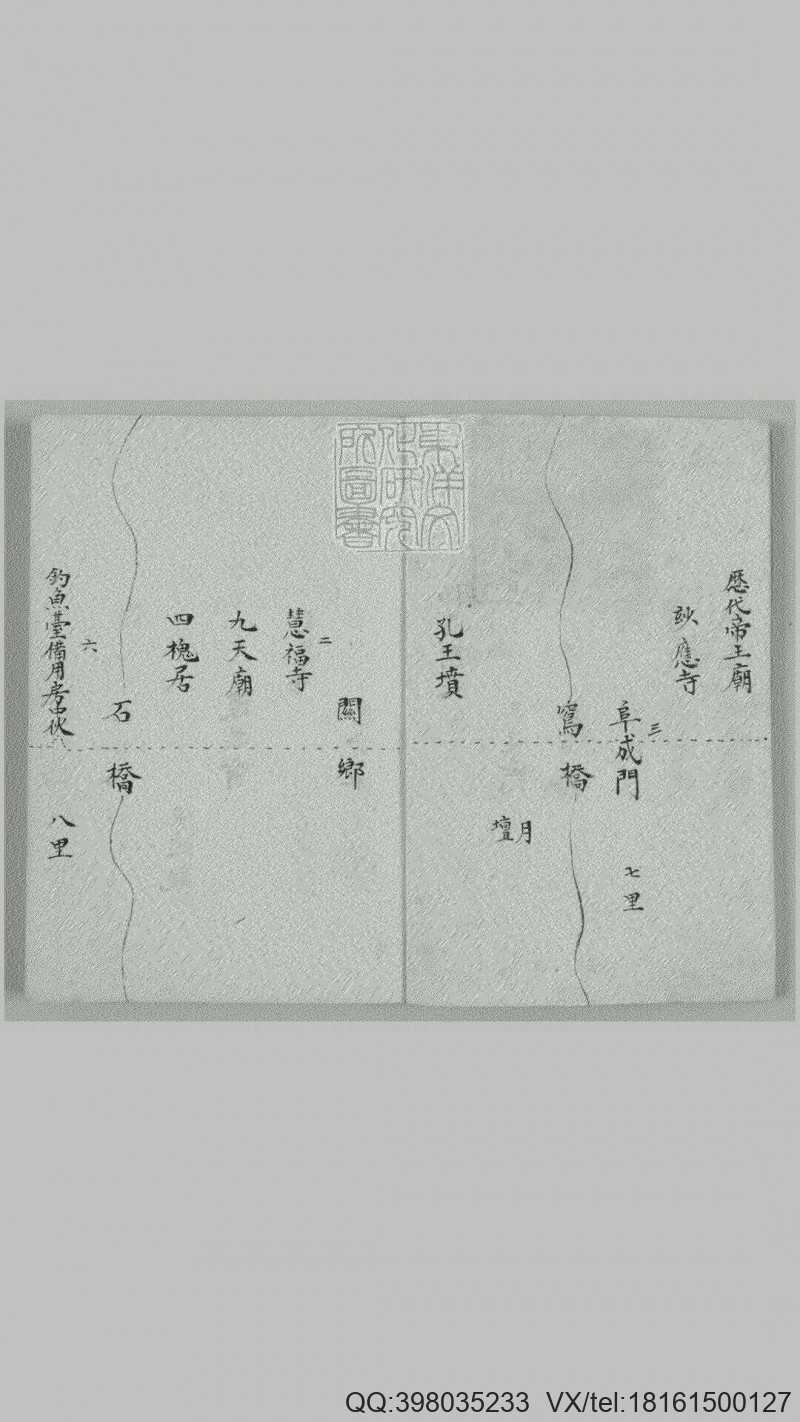 歷代帝王廟
妙應寺
三
阜成門
七里
窩橋
月壇
孔王墳
關鄉
二
慧福寺
九天廟
四槐居
石橋
六
釣魚臺備用房中伙
八里
東洋文化研究所圖書
QQ:398035233 VX/tel:18161500127